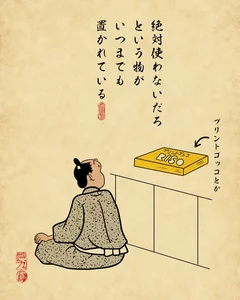 絶対使わないだろ
という物が
いつまでも
置かれている
プリントゴッコとか
プリントゴッコ
RISO